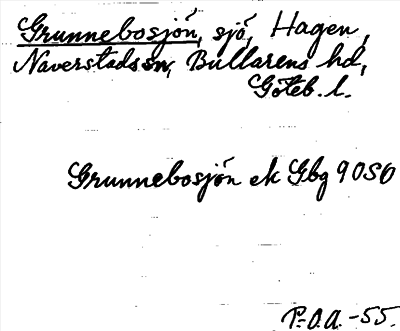 Grunnebosjön, sjö, Hagen,
Naverstads sn, Bullarens hd,
Göteb. l.
Grunnebosjön ek Gbg 9 OSO
P.O.A. -55.